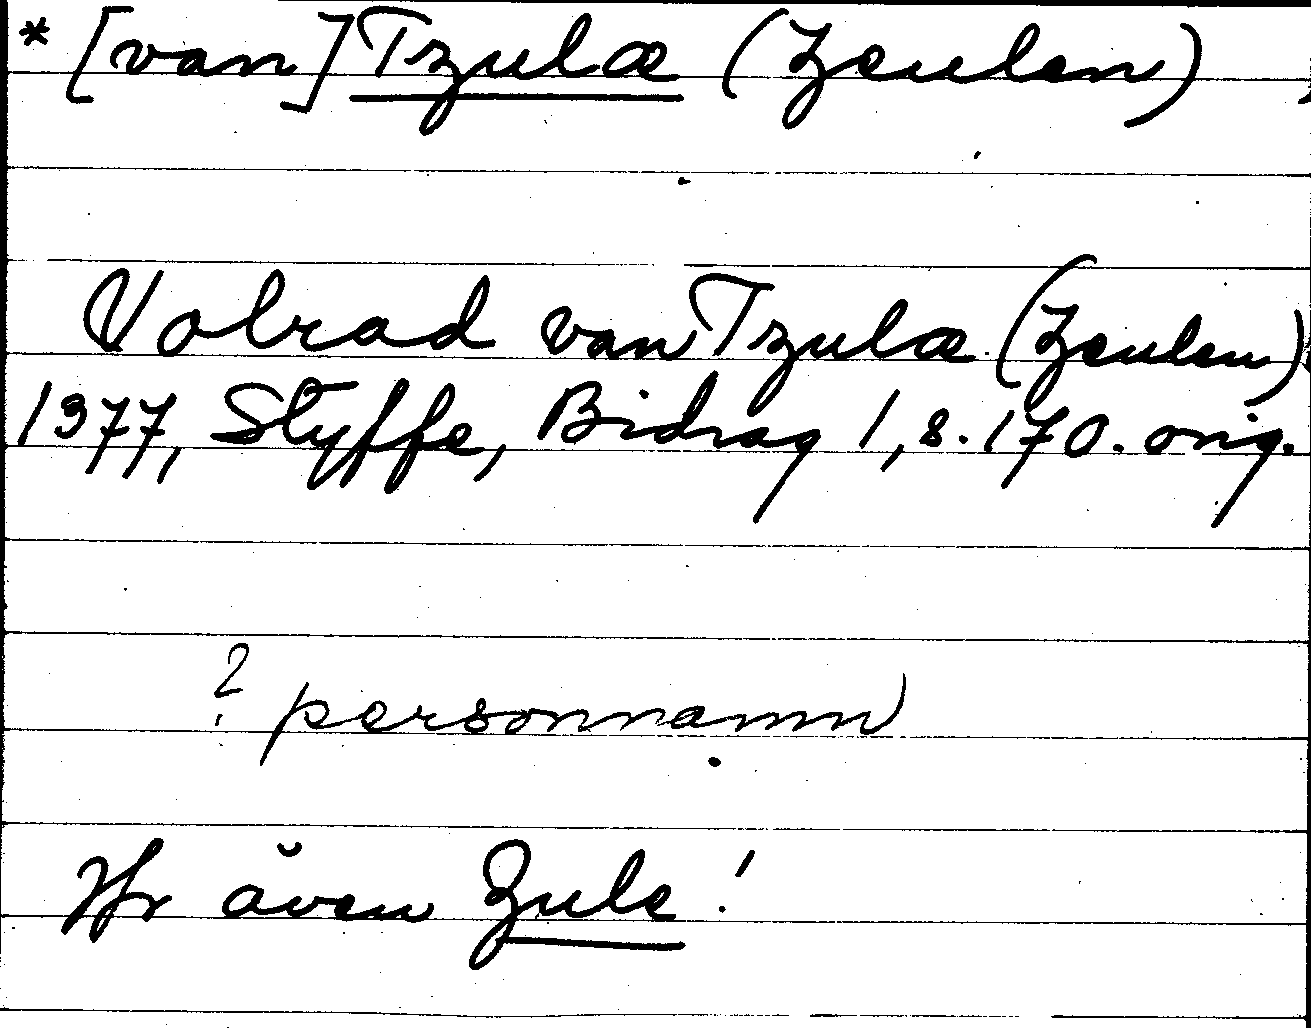 * [van] Tzulæ (Zeulen)
Volrad van Tzulæ (Zeulen)
1377, Styffe, Bidrag 1, s. 170. orig.
? personnamn
Jfr även Zule!